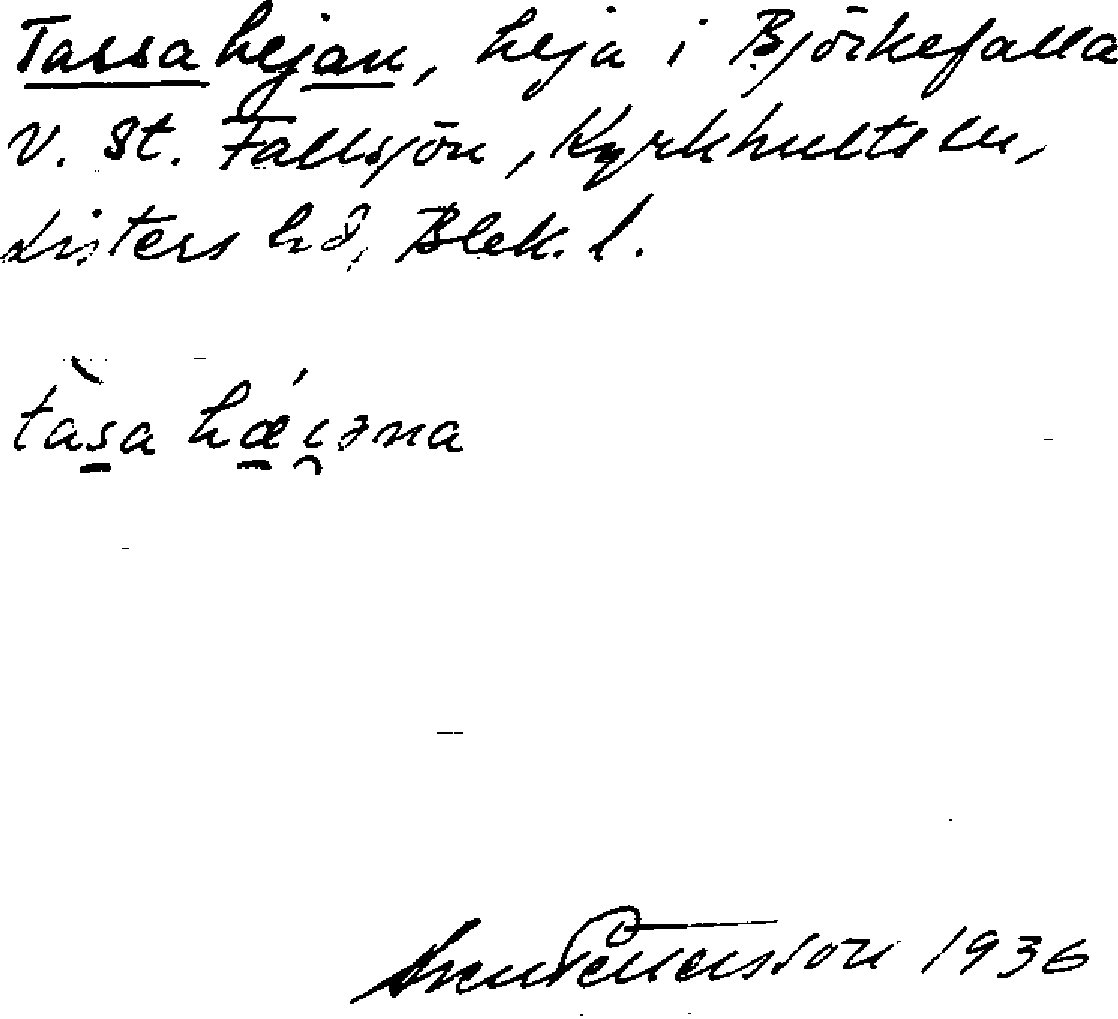 Tassahejan, heja i Björkefalla
v. St. Fallsjön, Kyrkhults sn,
Listers hd, Blek. l.
tàsa hǽi̯əna
Sven Pettersson 1936